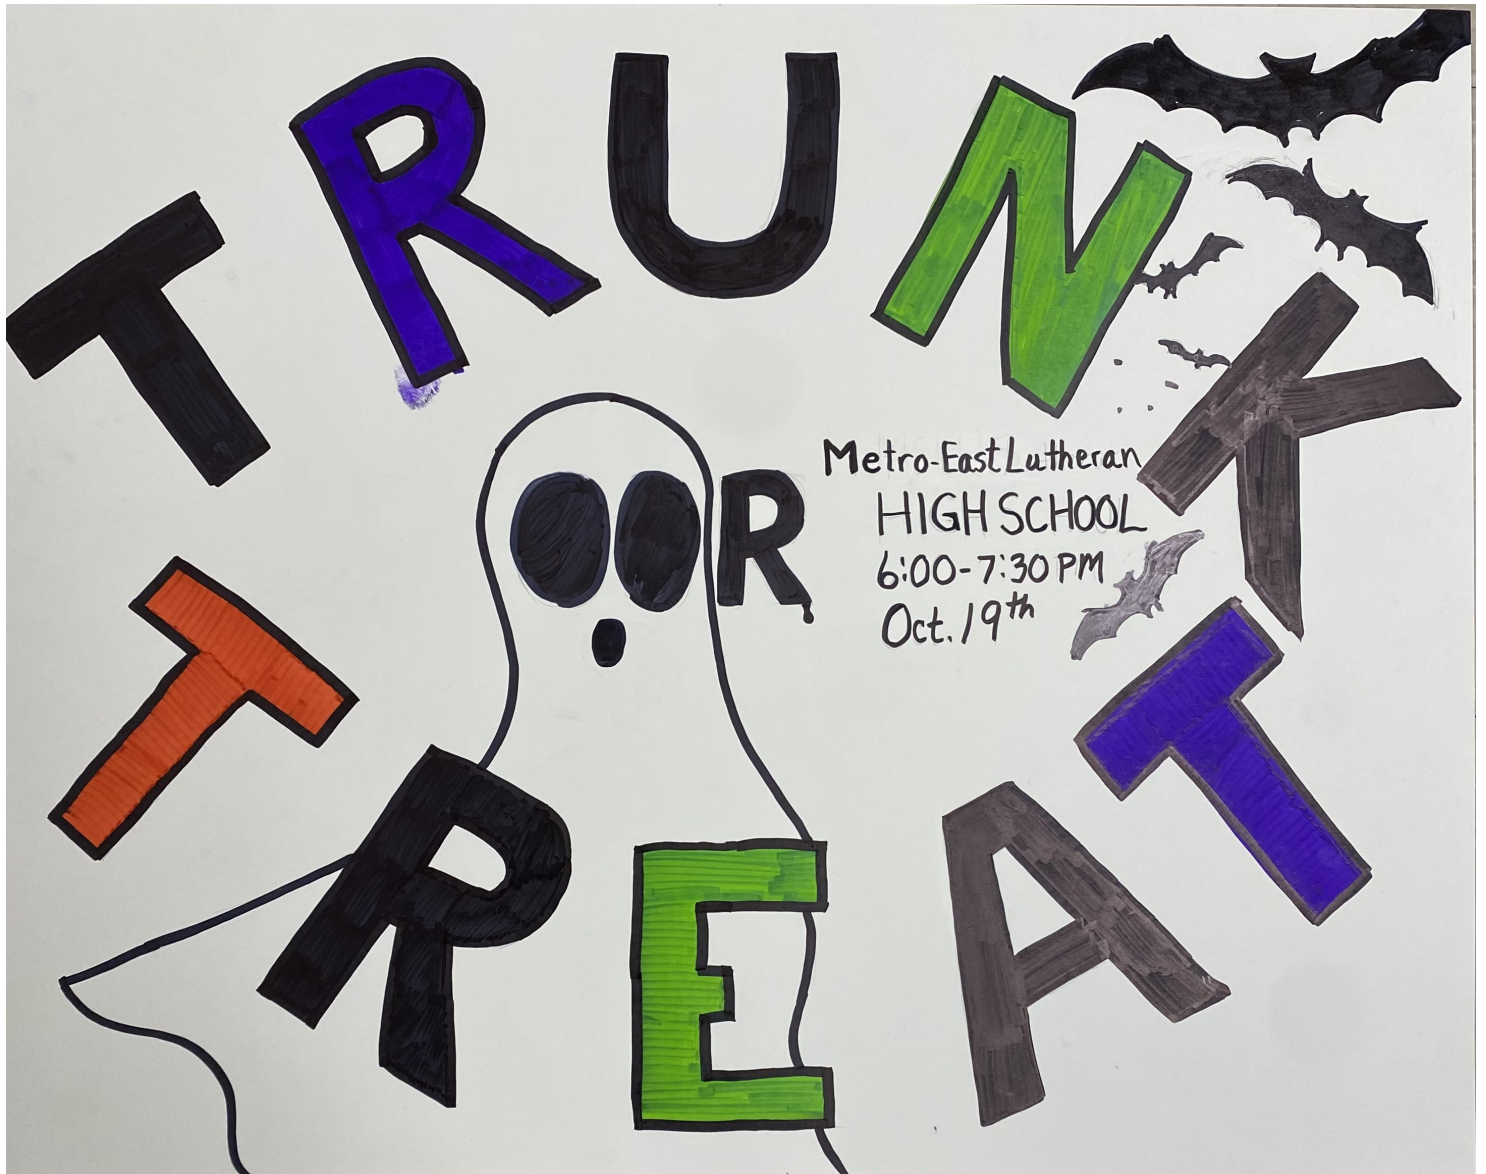 TRUNK
OR
TREAT
Metro-East Lutheran
HIGH SCHOOL
6:00-7:30 PM
Oct. 19th